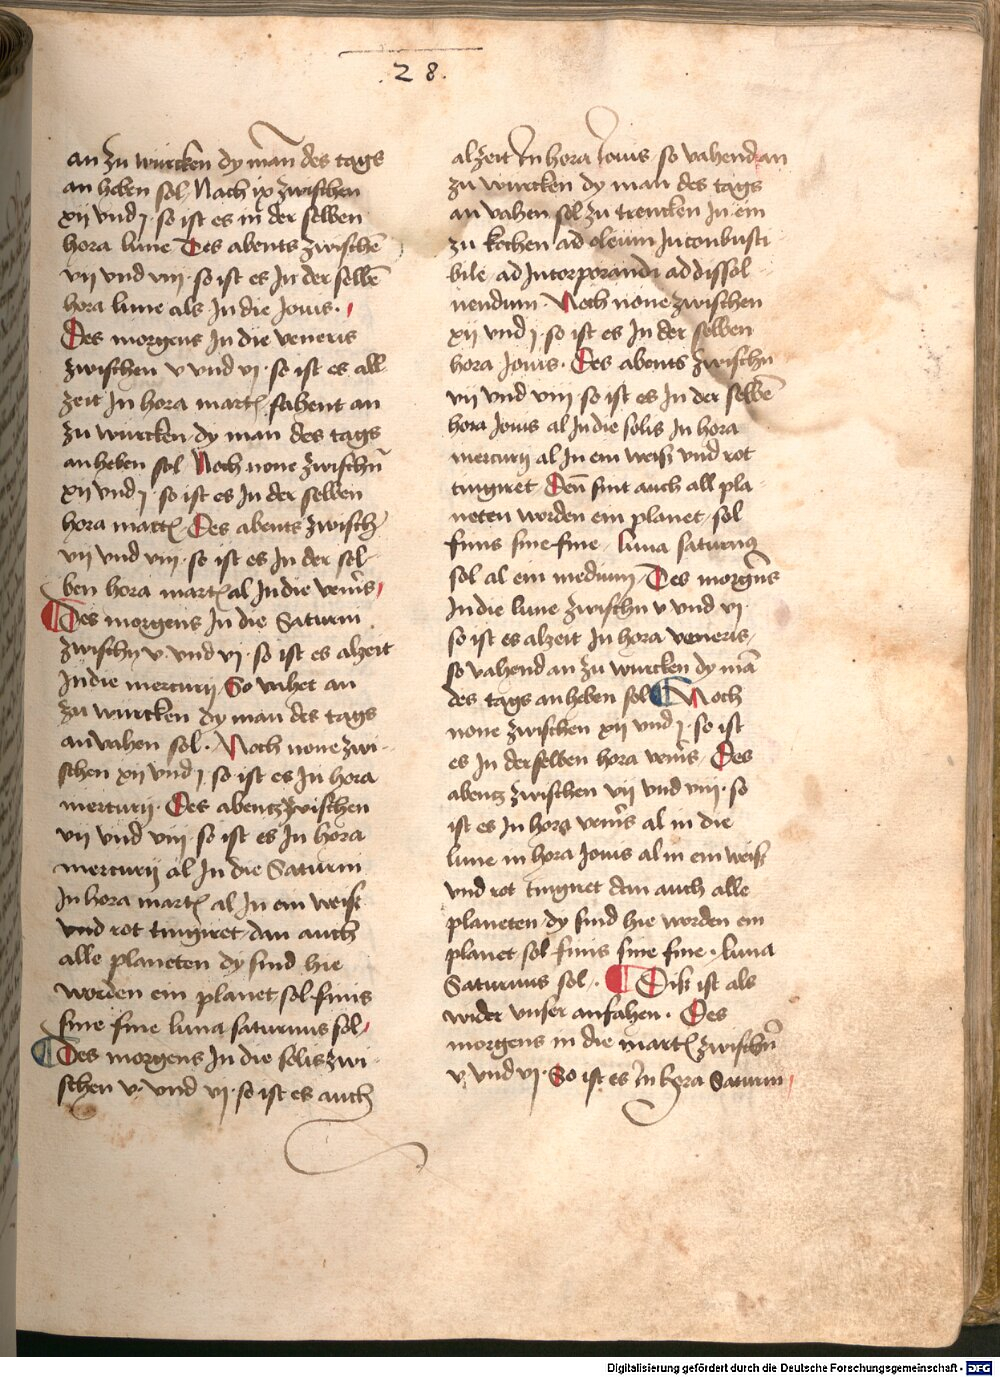 28.
an zu wurcken dy man des tags
an heben sol Nach ix zwischen
xij vnd j · so ist es in der selben
hora lune Des abents zwischē
vij vnd viij · so ist es In der selbē
hora lune als In die Jouis ·
Des morgens In die veneris
zwischen v vnd vj · so ist es all
zeit In hora mart fahent an
zu wurcken dy man des tags
anheben sol Noch none zwischn̄
xij vnd j · so ist es In der selben
hora mart Des abents zwisch
vij vnd viij · so ist es In der sel
ben hora mart al In die
Des morgens In die Saturni
zwischn v · vnd vj · so ist es alzeit
In die mercurij So vahet an
zu wurcken dy man des tags
an vahen sol · Noch none zwi
schen xij vnd j · so ist es In hora
mercurij · Des abentz zwischen
vij vnd viij · so ist es In hora
mercurij al In die Saturni
In hora mart al In ein weiß
vnd rot tingiret dan auch
alle planeten dy sind hie
worden ein planet sol finis
sine fine luna saturnus sol
Des morgens In die solis zwi
schen v · vnd vj · so ist es auch
alzeit In hora Jouis so vahend an
zu wurcken dy man des tags
an vahen sol zu trencken In ein
zu kochen ad oleum Inconbusti
bile ad Incorporandi ad dissol
uendum · Noch none zwischen
xij vnd j · so ist es In der selben
hora Jouis · Des abents zwischn
vij vnd viij so ist es In der selbē
hora Jouis al In die solis In hora
mercurij al In ein weiß vnd rot
tingiret Den̄ sint auch all pla
neten worden ein planet sol
finis sine fine luna saturnus
sol al ein medium Des
In die lune zwischn v vnd vj ·
so ist es alzeit In hora veneris
so vahend an zu wurcken dy mā
des tags an heben sol Noch
none zwischen xij vnd j · so ist
es In derselben hora Des
abentz zwischen vij vnd viij · so
ist es In hora al in die
lune in hora Jouis al in ein weiß
vnd rot tingiret dan auch alle
planeten dy sind hie worden ein
planet sol finis sine fine · luna
Saturnus sol · Diß ist als
wider vnser anfahen · Des
morgens in die mart zwischn̄
v · vnd vj · So ist es In hora Saturni
Digitalisierung gefördert durch die Deutsche Forschungsgemeinschaft - DFG